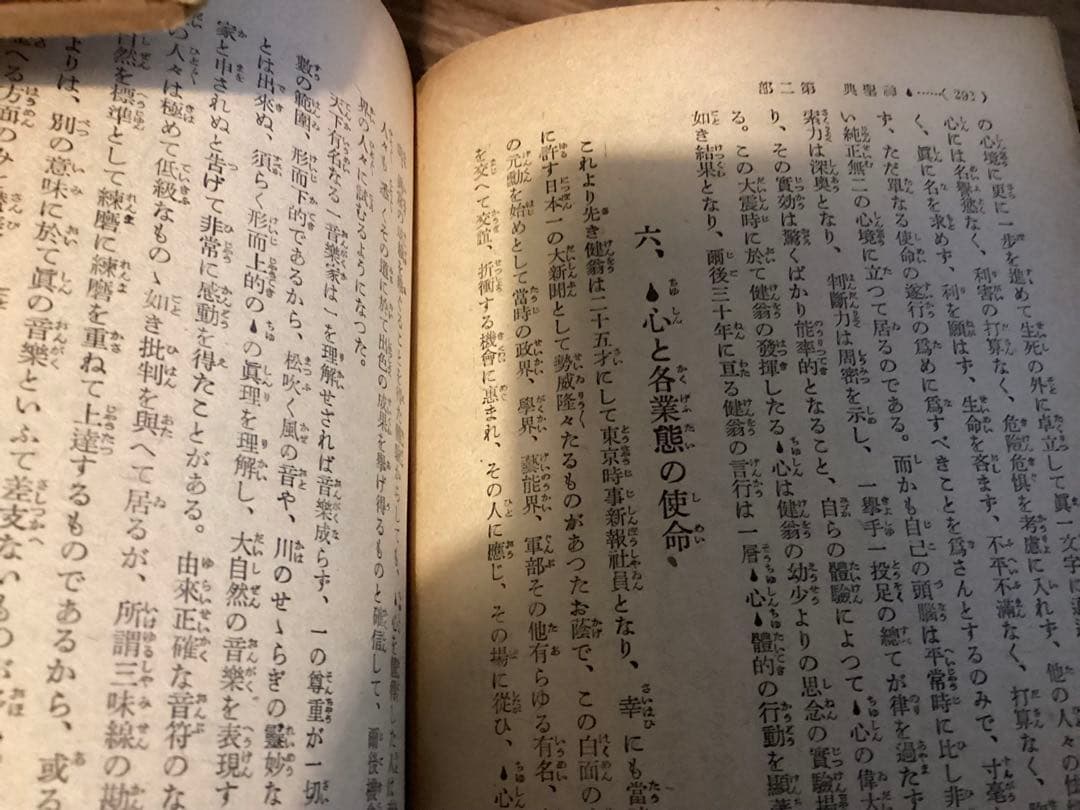 (292)……丶論聖典 第二部
の心境に更に一步を進めて生死の外に卓立して眞一文字に
心には名譽慾なく、利害の打算なく、危險危惧を考慮に入れず、他の人々の使
く、眞に名を求めず、利を願はず、生命を吝まず、不平不滿なく、打算なく、
ず、ただ單なる使命の遂行の爲めに爲すべきことを爲さんとするのみで、寸毫
い純正無二の心境に立つて居るのである。而かも自己の頭腦は平常時に比し非
索力は深奧となり、判斷力は周密を示し、一擧手一投足の總てが律を過たず
り、その實効は驚くばかり能率的となること、自らの體驗によつて丶心の偉大
る。この大震時に於て健翁の發揮したる丶心は健翁の幼少よりの思念の實驗場
如き結果となり、爾後三十年に亘る健翁の言行は一層丶心丶體的の行動を顯著
六、丶心と各業態の使命
これより先き健翁は二十五才にして東京時事新報社員となり、幸にも當
に許す日本一の大新聞として勢威隆々たるものがあつたお蔭で、この白面の
の元勳を始めとして當時の政界、學界、藝能界、軍部その他有らゆる有名、
を交へて交誼、折衝する機會に惠まれ、その人に應じ、その場に從ひ、丶心
人々も悉くその道に於て出色の成果を擧げ得るものと確信して、爾後接
界の人々に試むるようになつた。
天下有名なる一音樂家は丶を理解せざれば音樂成らず、丶の尊重が一切
數の範圍、形而下的であるから、松吹く風の音や、川のせゝらぎの靈妙な
とは出來ぬ、須らく形而上的の丶の眞理を理解し、大自然の音樂を表現す
家と申されぬと告げて非常に感動を得たことがある。由來正確な音符のな
の人々は極めて低級なものゝ如き批判を與へて居るが、所謂三味線の勘
自然を標準として練磨に練磨を重ねて上達するものであるから、或る
よりは、別の意味に於て眞の音樂といふて差支ないものが多
へる方面のみ